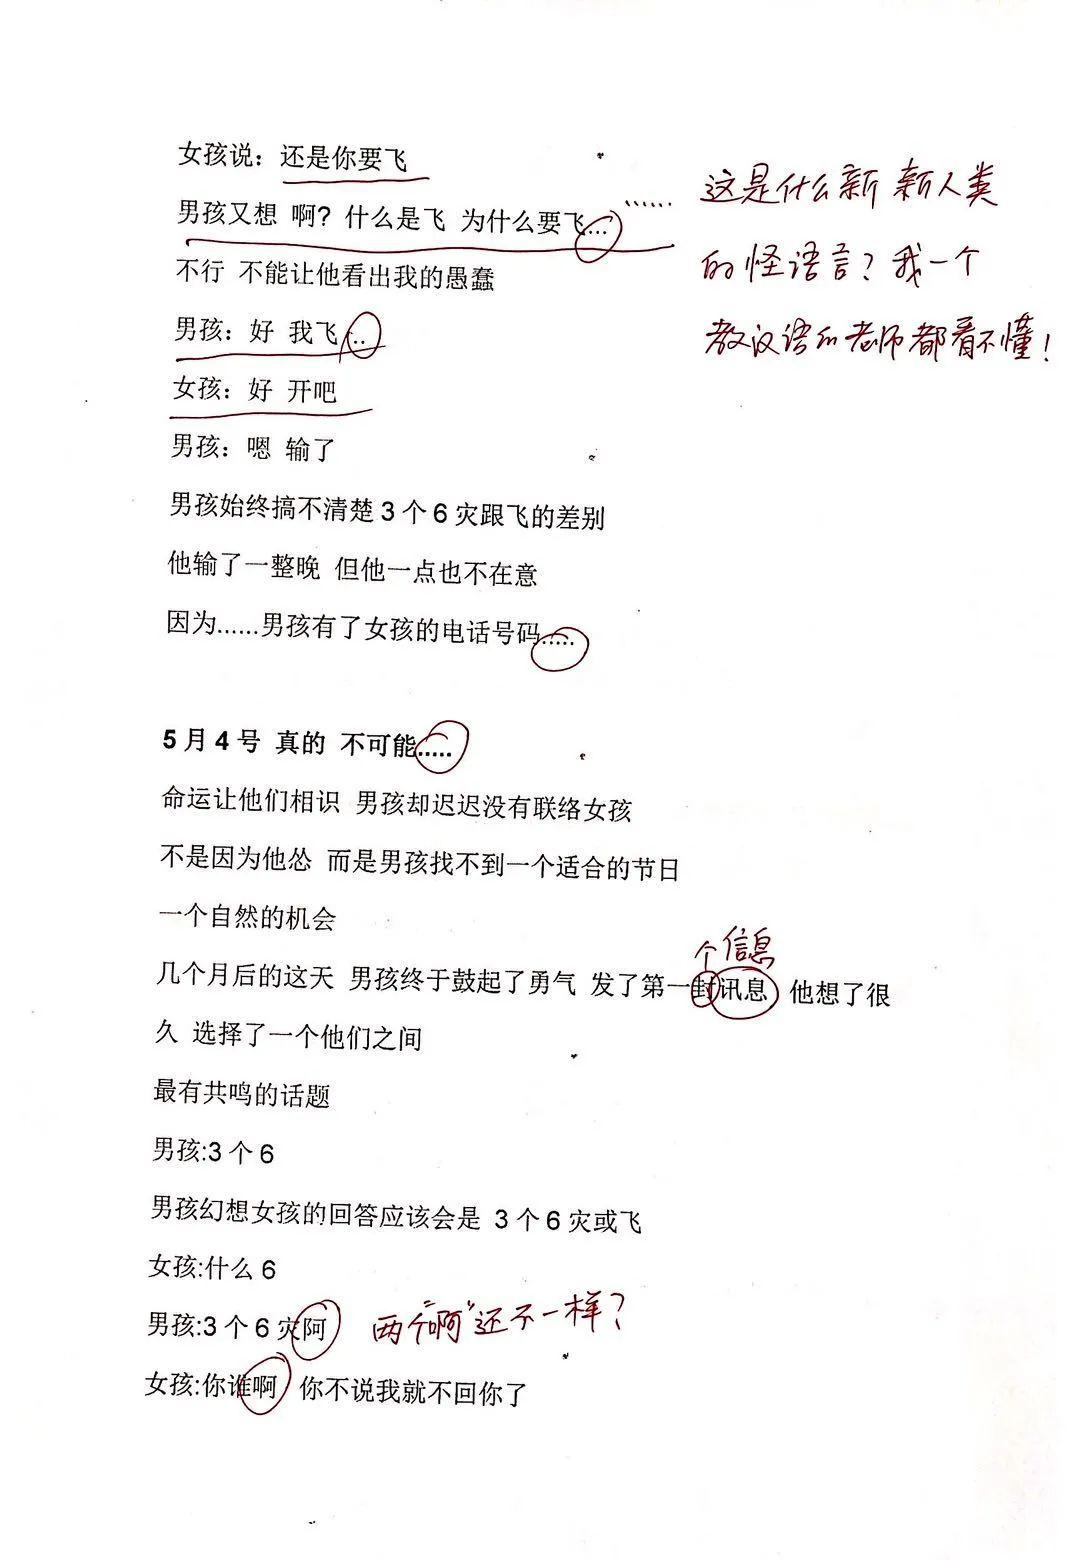 女孩说：还是你要飞
男孩又想 啊? 什么是飞 为什么要飞... ......
这是什么新新人类
的怪语言？我一个
教汉语的老师都看不懂！
不行 不能让他看出我的愚蠢
男孩：好 我飞...
女孩：好 开吧
男孩：嗯 输了
男孩始终搞不清楚 3 个 6 灾跟飞的差别
他输了一整晚 但他一点也不在意
因为......男孩有了女孩的电话号码.....
5 月 4 号 真的 不可能.....
命运让他们相识 男孩却迟迟没有联络女孩
不是因为他怂 而是男孩找不到一个适合的节日
一个自然的机会
个 信息
几个月后的这天 男孩终于鼓起了勇气 发了第一封讯息 他想了很
久 选择了一个他们之间
最有共鸣的话题
男孩:3 个 6
男孩幻想女孩的回答应该会是 3 个 6 灾或飞
女孩:什么 6
男孩:3 个 6 灾阿 两个"啊"还不一样？
女孩:你谁啊 你不说我就不回你了